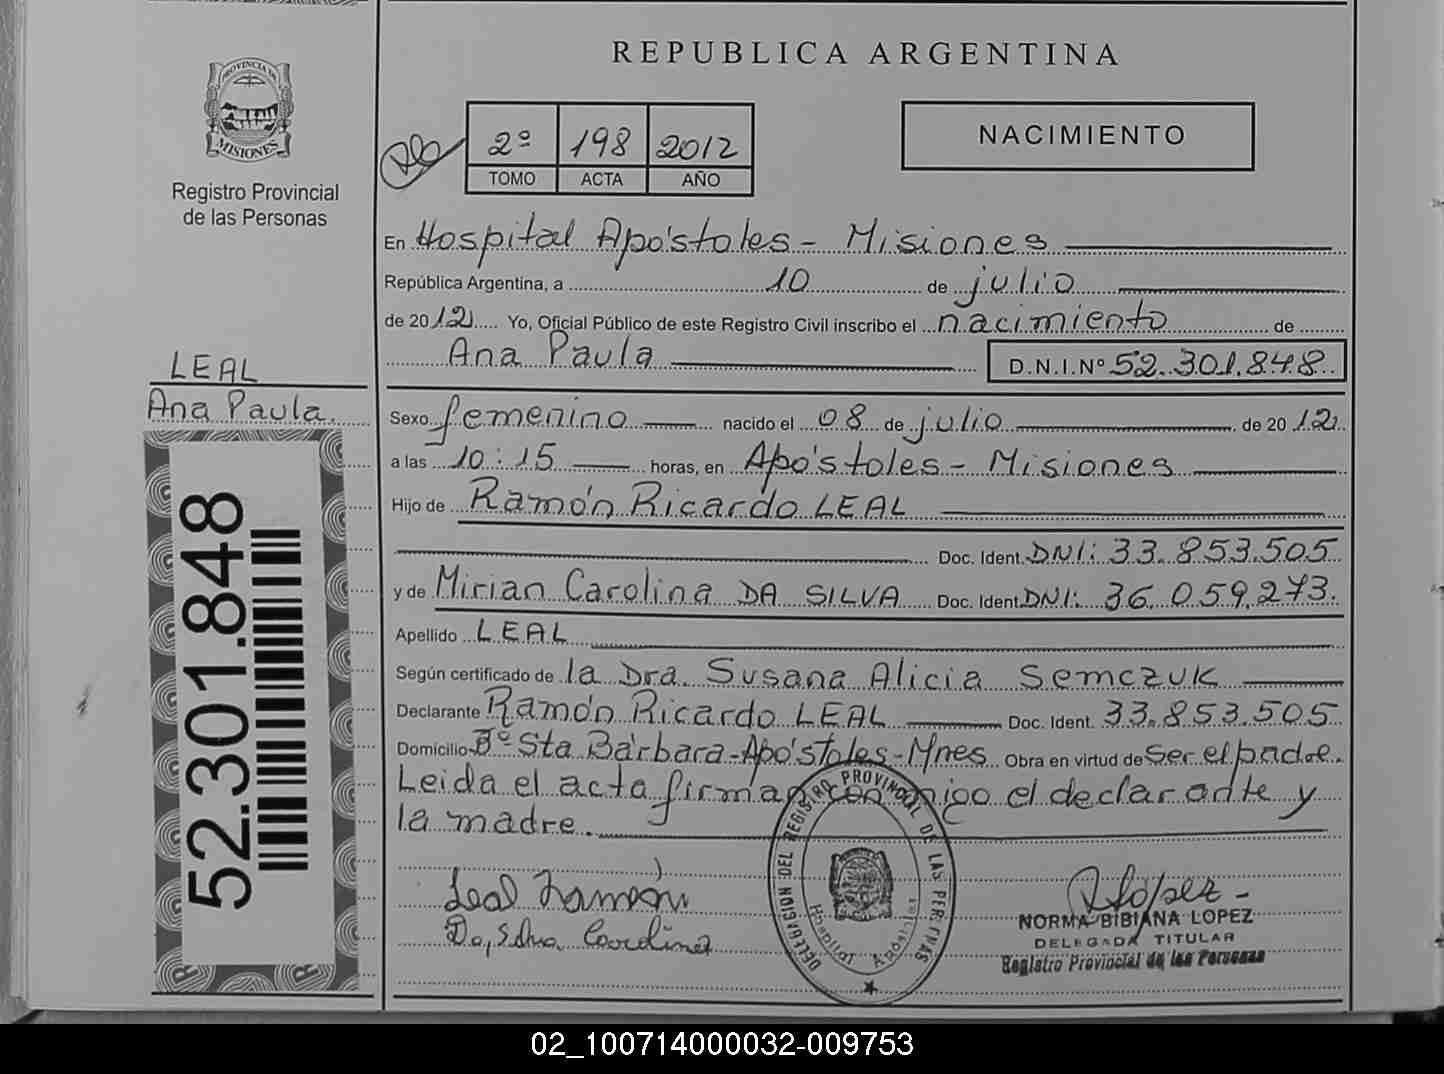 REPUBLICA ARGENTINA
PROVINCIA DE
MISIONES
Registro Provincial
de las Personas
2º 198 2012
TOMO ACTA AÑO
NACIMIENTO
En Hospital Apóstoles - Misiones
República Argentina, a 10 de julio
de 2012 Yo, Oficial Público de este Registro Civil inscribo el nacimiento de
Ana Paula D.N.I.Nº 52.301.848
LEAL
Ana Paula.
52.301.848
Sexo femenino nacido el 08 de julio de 2012
a las 10:15 horas, en Apóstoles - Misiones
Hijo de Ramón Ricardo LEAL
Doc. Ident. DNI: 33.853.505
y de Mirian Carolina DA SILVA Doc. Ident. DNI: 36.059.273.
Apellido LEAL
Según certificado de la Dra. Susana Alicia Semczuk
Declarante Ramón Ricardo LEAL Doc. Ident. 33.853.505
Domicilio Bº Sta Bárbara - Apóstoles - Mnes Obra en virtud de ser el padre.
Leida el acta firman conmigo el declarante y
la madre.
Leal Ramón
Da Silva Carolina
DELEGACION DEL REGISTRO PROVINCIAL DE LAS PERSONAS
Hospital Apóstoles
López
NORMA BIBIANA LOPEZ
DELEGADA TITULAR
Registro Provincial de las Personas
02_100714000032-009753